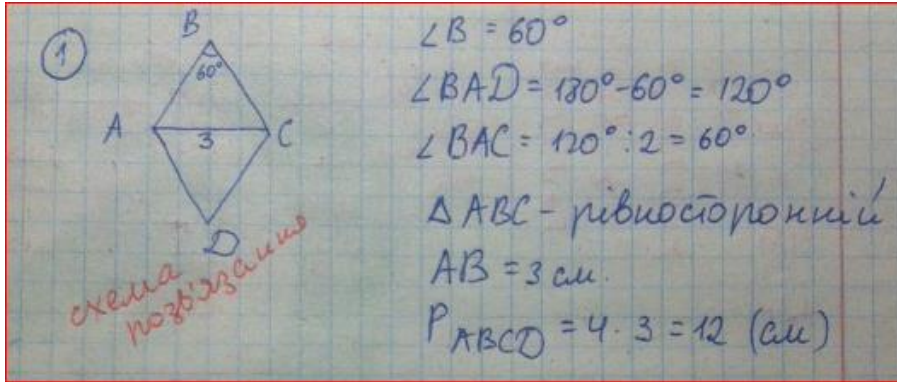 1
B
60°
A
3
C
D
схема
розв'язання
∠B = 60°
∠BAD = 180°-60° = 120°
∠BAC = 120° : 2 = 60°
△ABC - рівносторонній
AB = 3 см.
P ABCD = 4 · 3 = 12 (см)